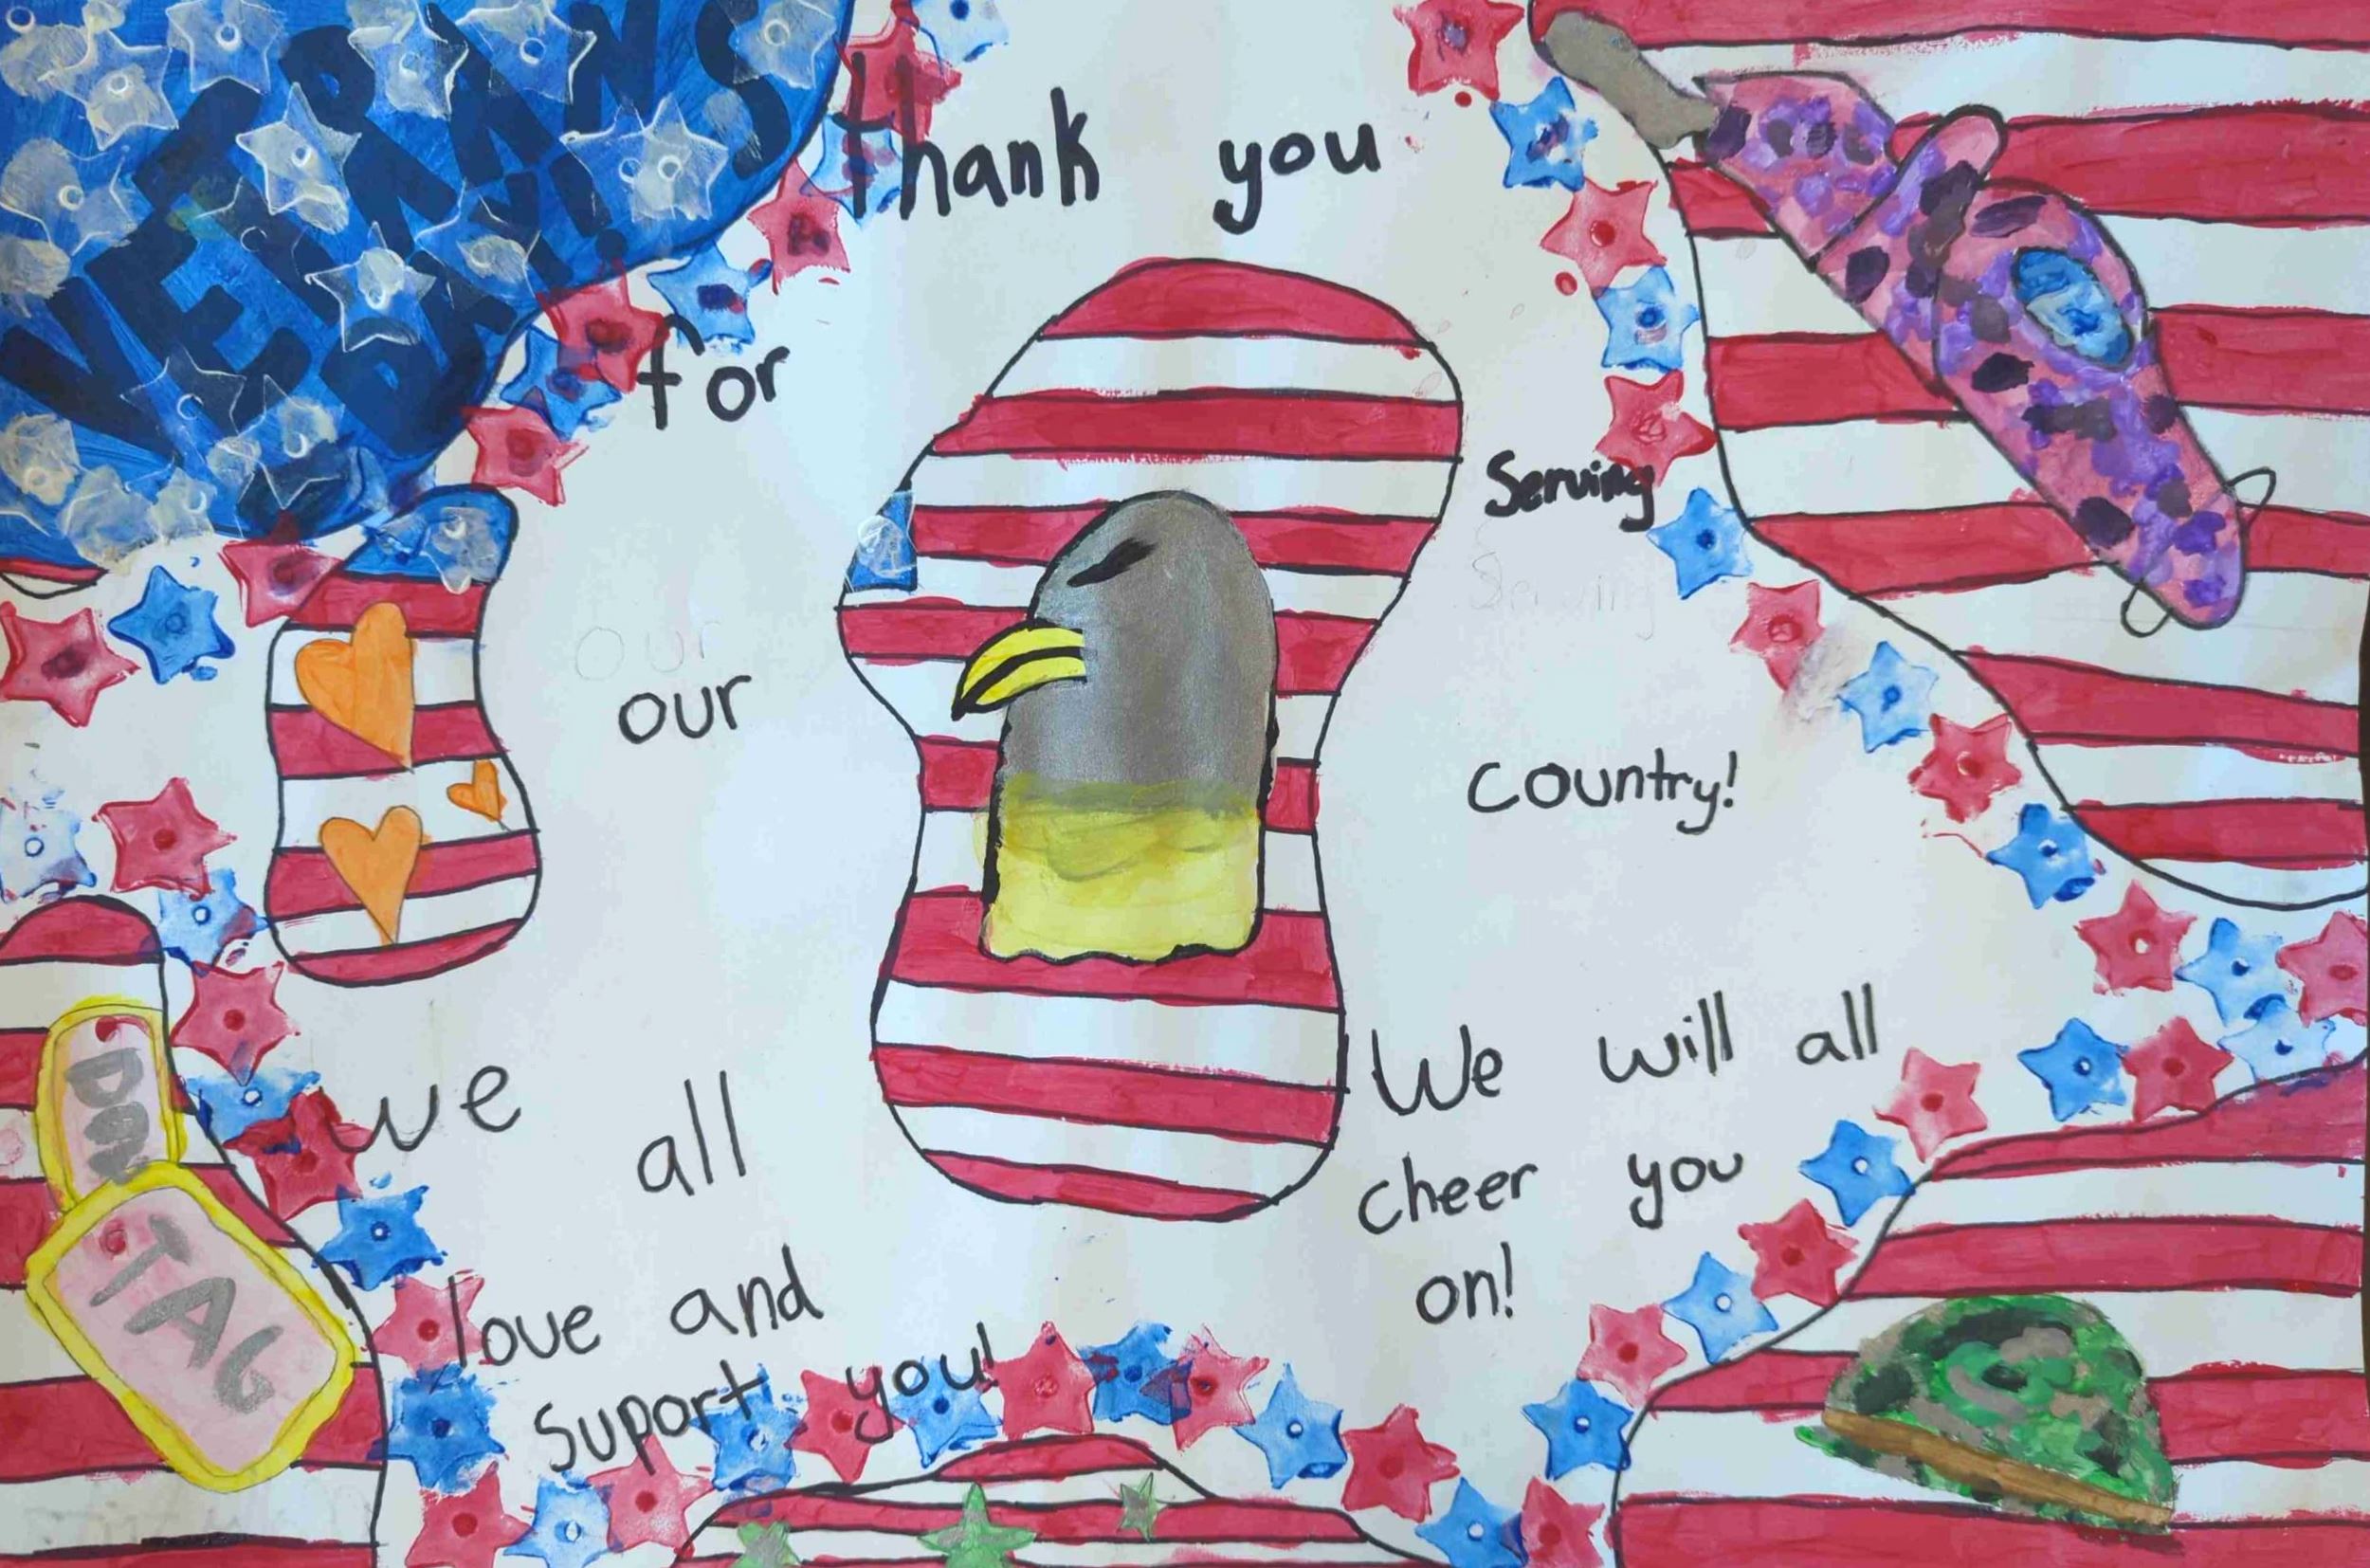 VETRANS
DAY!
Thank you
for
Serving
our
Country!
we
all
love and
Suport you!
We will all
cheer you
on!
DOG
TAG